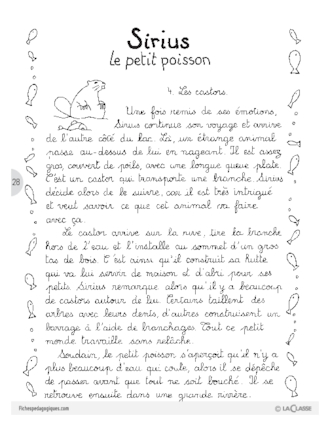 Sirius
Le petit poisson
4. Les castors.
Une fois remis de ses émotions,
Sirius continue son voyage et arrive
de l'autre côté du lac. Là, un étrange animal
passe au-dessus de lui en nageant. Il est assez
gros, couvert de poils, avec une longue queue plate.
C'est un castor qui transporte une branche. Sirius
décide alors de le suivre, car il est très intrigué
et veut savoir ce que cet animal va faire
avec ça.
Le castor arrive sur la rive, tire la branche
hors de l'eau et l'installe au sommet d'un gros
tas de bois. C'est ainsi qu'il construit sa hutte
qui va lui servir de maison et d'abri pour ses
petits. Sirius remarque alors qu'il y a beaucoup
de castors autour de lui. Certains taillent des
arbres avec leurs dents, d'autres construisent un
barrage à l'aide de branchages. Tout ce petit
monde travaille sans relâche.
Soudain, le petit poisson s'aperçoit qu'il n'y a
plus beaucoup d'eau qui coule, alors il se dépêche
de passer avant que tout ne soit bouché. Il se
retrouve ensuite dans une grande rivière.
28
Fichespedagogiques.com
© LACLASSE